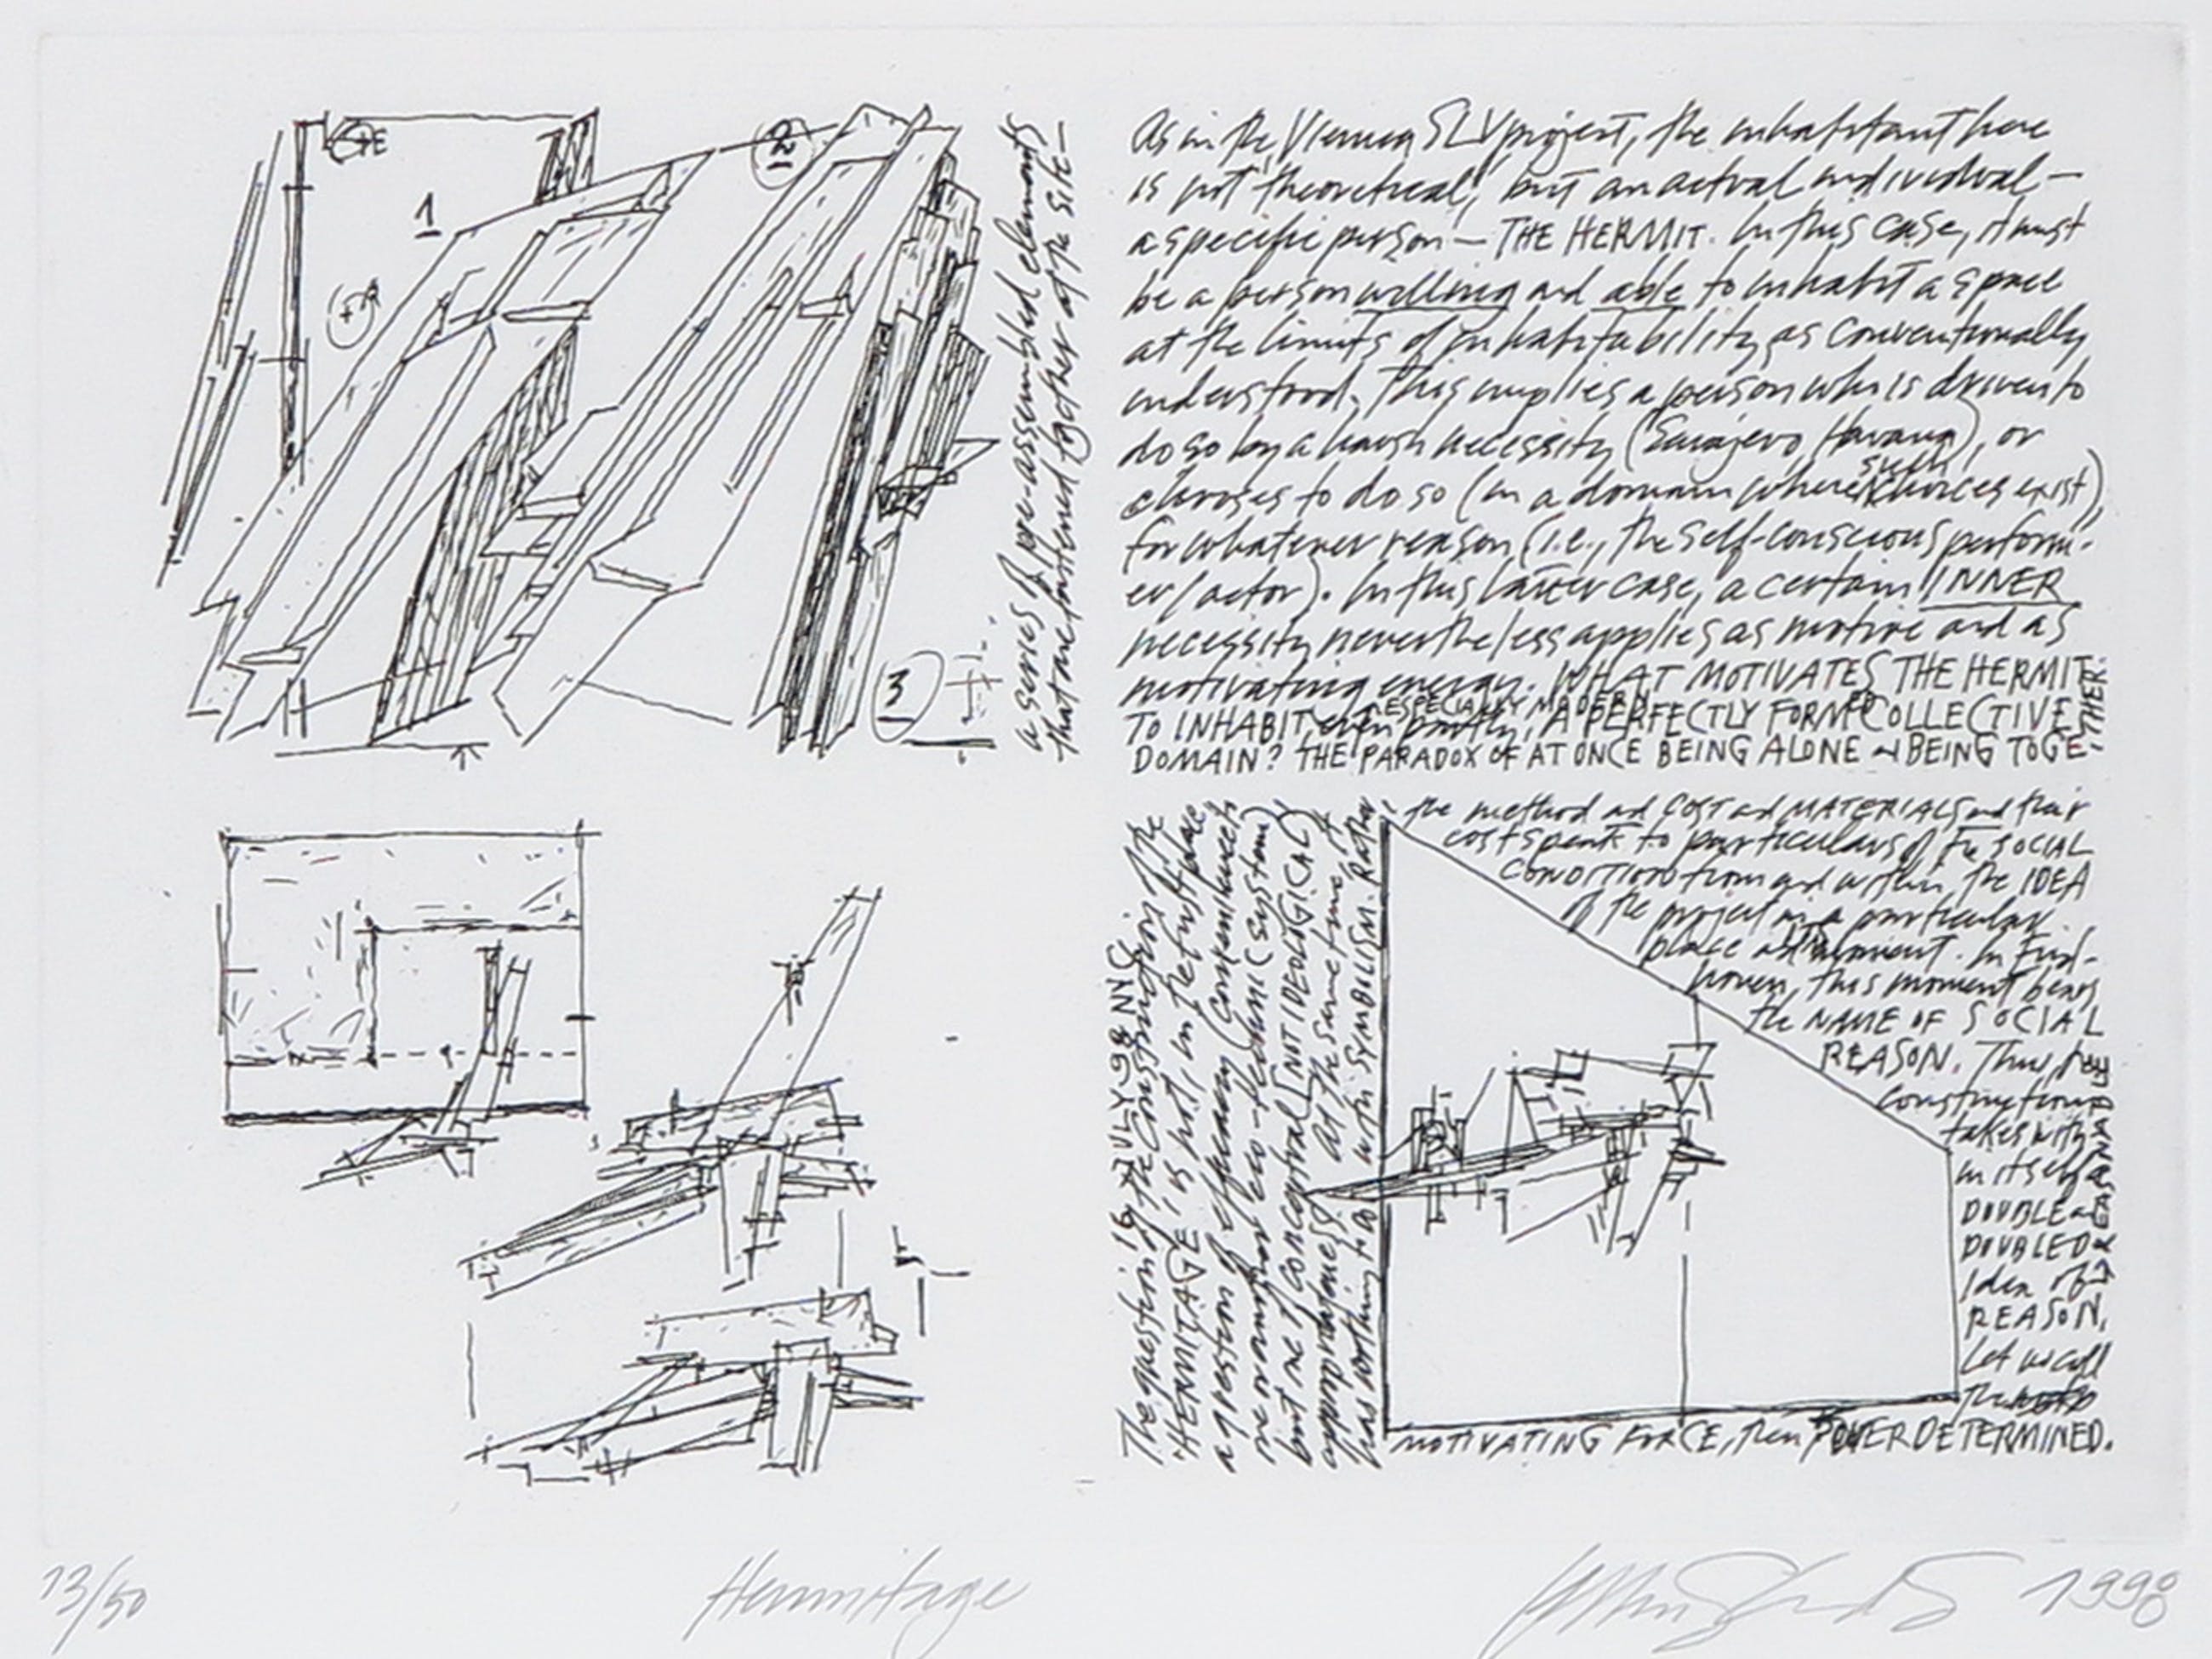 1
2
3
a series of pre-assembled elements
that are fastened together at the site—
As in the Vienna SLV project, the inhabitant here
is not "theoretical," but an actual individual—
a specific person — THE HERMIT. In this case, it must
be a person willing and able to inhabit a space
at the limits of inhabitability as conventionally
understood. This implies a person who is driven to
do so by a harsh necessity (Sarajevo, Havana), or
chooses to do so (in a domain where such choices exist),
for whatever reason (i.e., the self-conscious perform-
er/actor). In this latter case, a certain INNER
necessity nevertheless applies as motive and as
motivating energy. WHAT MOTIVATES THE HERMIT
TO INHABIT, ESPECIALLY A PERFECTLY FORMED COLLECTIVE
DOMAIN? THE PARADOX OF AT ONCE BEING ALONE and BEING TOGE-
THER.
16 JULY 98 NYC
The question of the construction of the
'HERMITAGE' is not, in the first place
a question of efficiency
one or another eco- (system)
but one of conceptual [NOT IDEOLOGICAL]
appropriateness. At the same time, it
has nothing to do with SYMBOLISM. Rather
the method and COST and MATERIALS and their
cost speak to particulars of the SOCIAL
CONDITION from and within the IDEA
of the project in a particular
place and moment. In Eind-
hoven, this moment bears
the NAME OF SOCIAL
REASON. Thus, the
construction
takes
in itself a
DOUBLE and
DOUBLED
idea of
REASON.
Let us call
the
MOTIVATING FORCE, then POWER DETERMINED.
13/50
Hermitage
1998